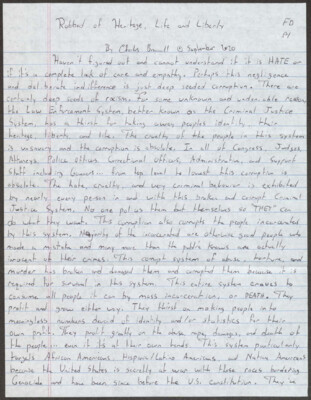 Robbed of Heritage, Life and Liberty
FD
P1
By Charles Brownell © September 2020
Haven't figured out and cannot understand if it is HATE or
if it's a complete lack of care and empathy. Perhaps this negligence
and deliberate indifference is just deep seeded corruption. There are
certainly deep seeds of racism for some unknown and undeniable reason,
the Law Enforcement System better known as the Criminal Justice
System has a thirst for taking away peoples identity, their
heritage, talents and life. The cruelty of the people in this system
is unsavory and the corruption is obsolete. In all of Congress, Judges
Attorneys, Police officers, Correctional officers, Administration, and Support
Staff including Governors... from top level to lowest this corruption is
obsolete. The hate, cruelty, and very criminal behavior is exhibited
by nearly every person in and with this broken and corrupt Criminal
Justice System. No one put us there but themselves so THEY can
do what they want. This corruption also corrupts the people incarcerated
by this system. Majority of the incarcerated are otherwise good people who
made a mistake and many more than the public knows are actually
innocent of their crimes. This corrupt system of abuse, torture, and
murder has broken and damaged them and corrupted them because it is
required for survival in this system. This entire system craves to
consume all people it can by mass incarceration or DEATH. They
profit and grow either way. They thrive on making people into
meaningless numbers devoid of identity and/or statistics for their
own profit. They profit greatly in the abuse, rape, damages, and death of
the people even if its at their own hands. This system particularly
targets African Americans, Hispanic/Latino Americans, and Native Americans
because the United States is socially at war with those races bordering
Genocide and have been since before the U.S. constitution. They've